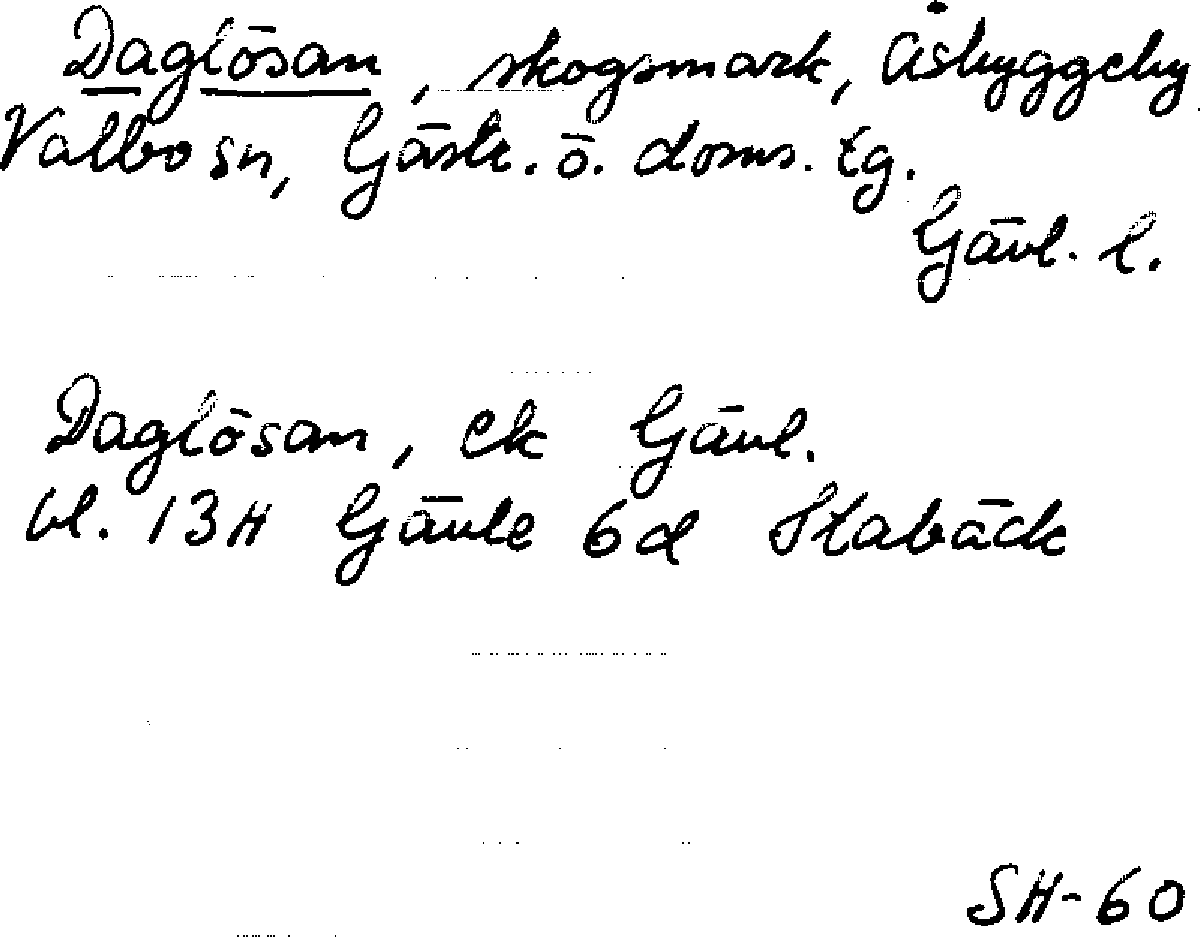 Daglösan, skogsmark, Åsbyggeby
Valbo sn, Gästr. ö. doms. tg.
Gävl. l.
Daglösan, ek Gävl.
bl. 13H Gävle 6d Stabäck
SH-60